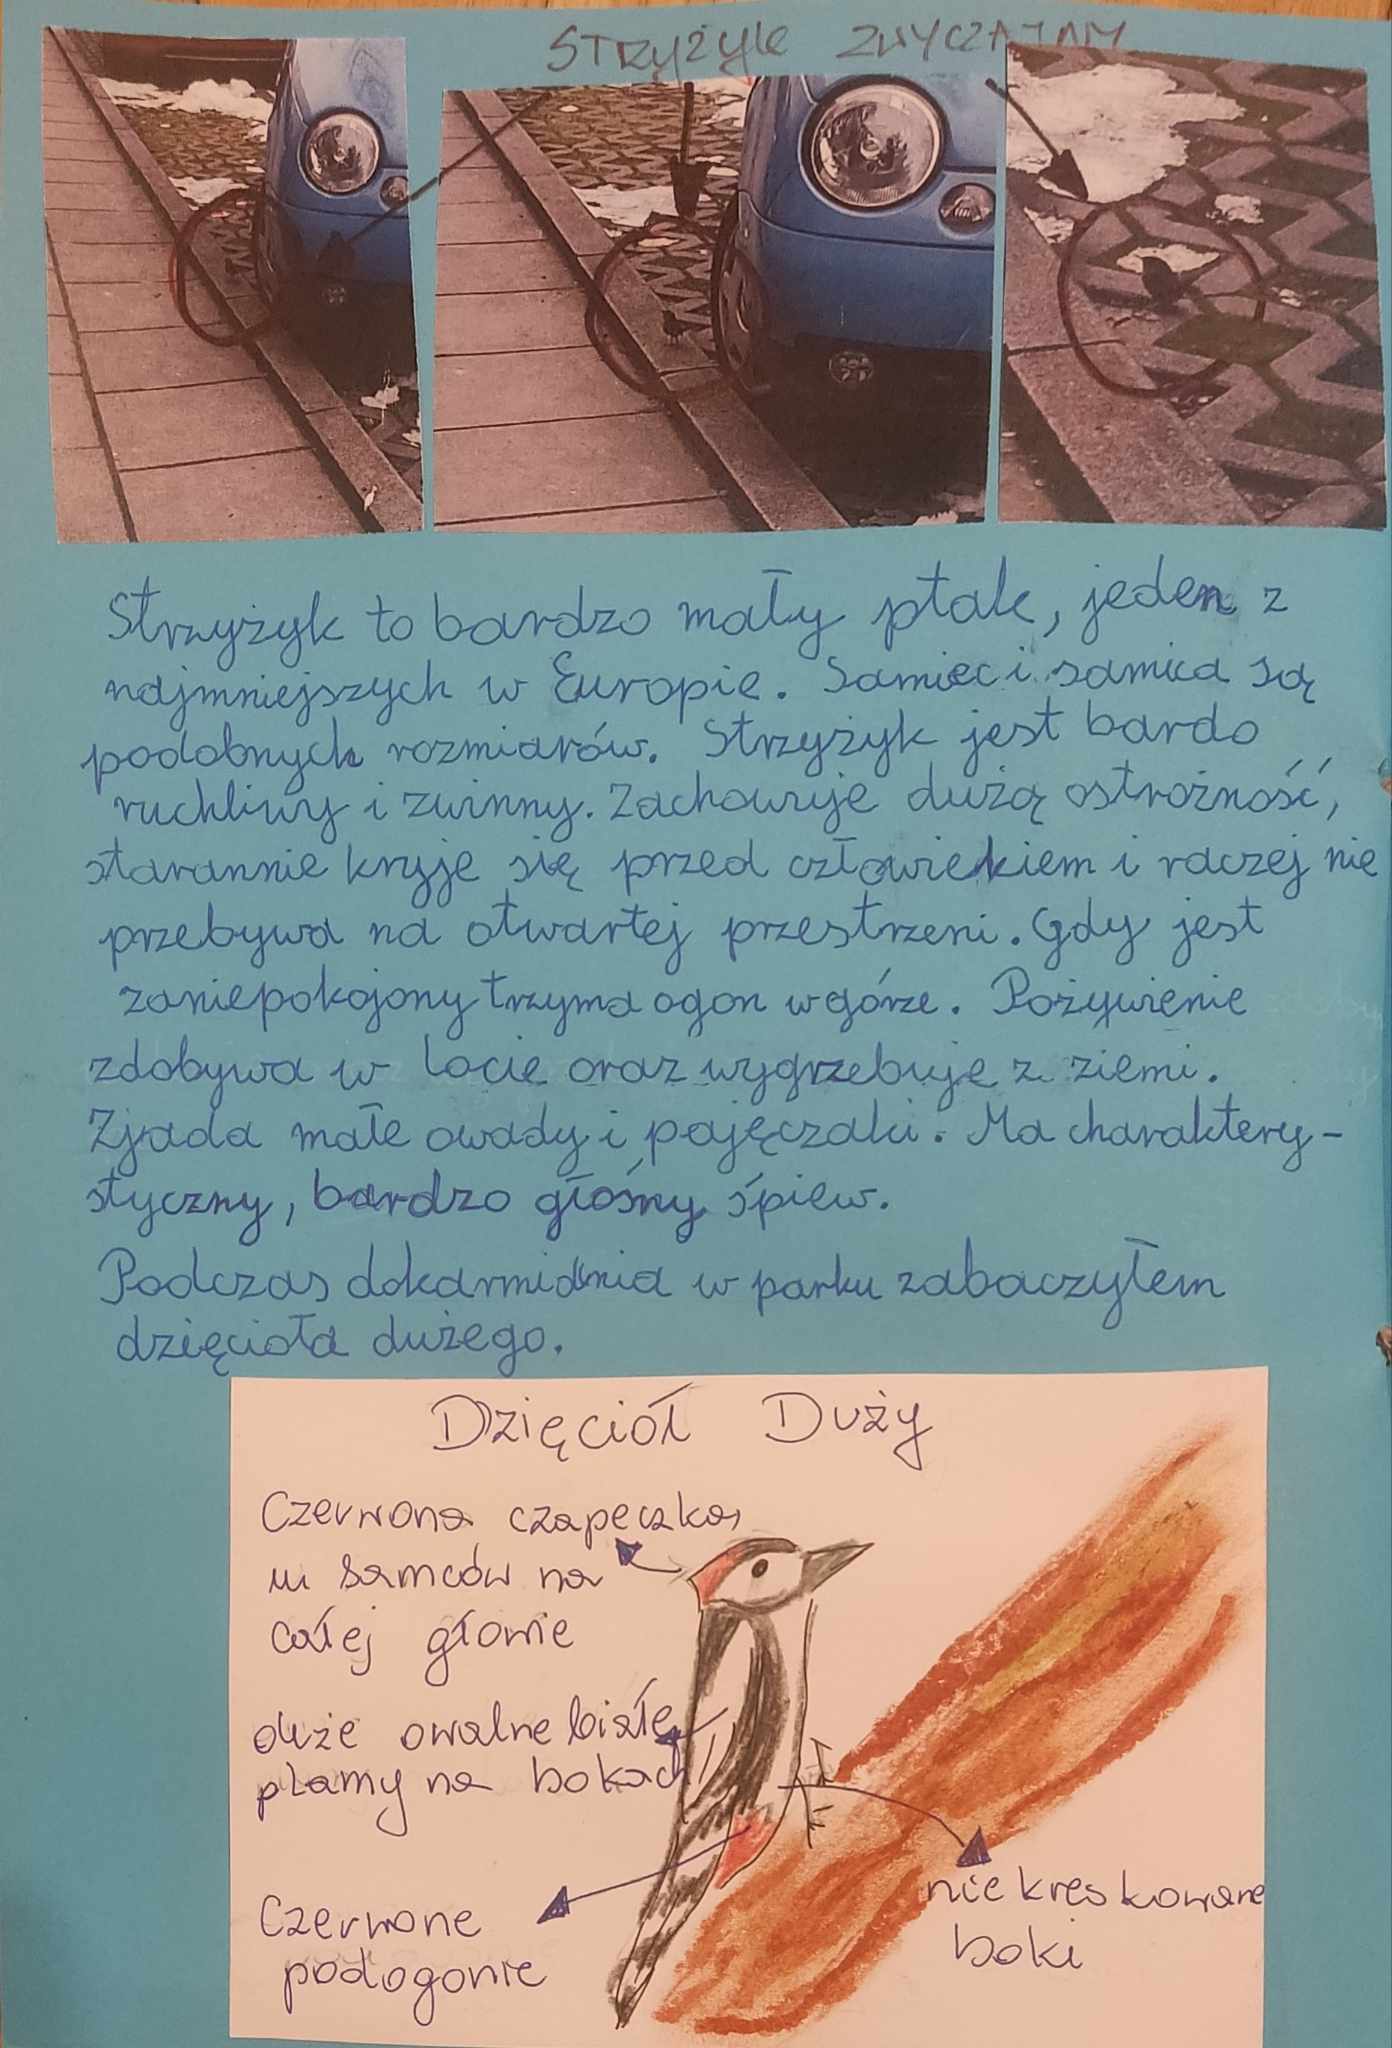 STRZYŻYK ZWYCZAJNY
Strzyżyk to bardzo mały ptak, jeden z
najmniejszych w Europie. Samiec i samica są
podobnych rozmiarów. Strzyżyk jest bardo
ruchliwy i zwinny. Zachowuje dużą ostrożność,
starannie kryje się przed człowiekiem i raczej nie
przebywa na otwartej przestrzeni. Gdy jest
zaniepokojony trzyma ogon w górze. Pożywienie
zdobywa w locie oraz wygrzebuje z ziemi.
Zjada małe owady i pajęczaki. Ma charaktery-
styczny, bardzo głośny śpiew.
Podczas dokarmiania w parku zabaczyłem
dzięcioła dużego.
Dzięciół Duży
Czerwona czapeczka,
u samców na
całej głowie
duże owalne białe
plamy na bokach
Czerwone
podogonie
nie kreskowane
boki